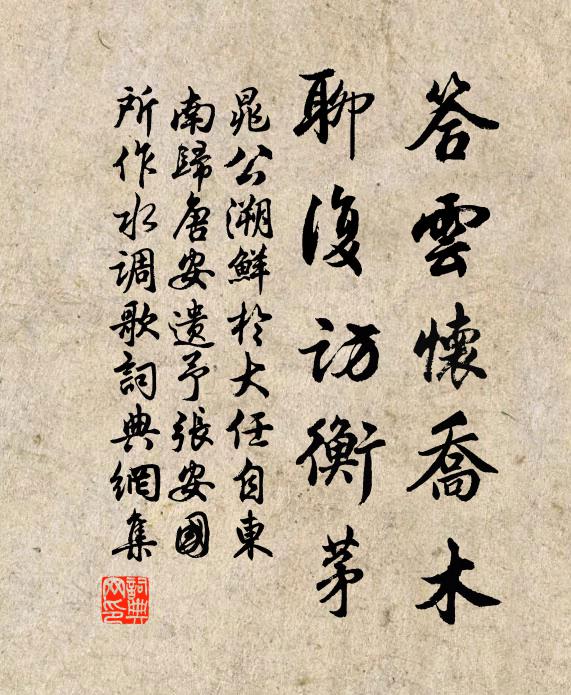 答雲懷喬木
聊復訪衡茅
晁公溯鮮於大任自東
南歸唐安遺予張安國
所作水調歌詞典網集
詞典